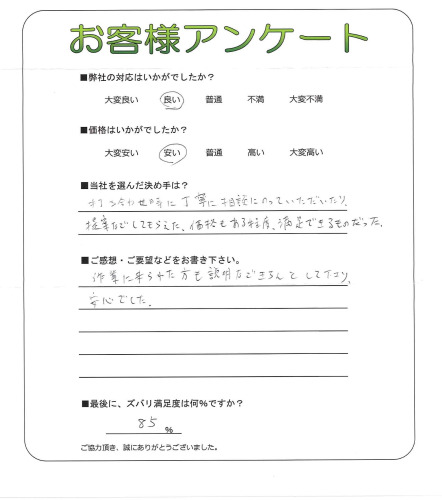 お客様アンケート
■弊社の対応はいかがでしたか?
大変良い 良い 普通 不満 大変不満
■価格はいかがでしたか?
大変安い 安い 普通 高い 大変高い
■当社を選んだ決め手は?
打ち合わせ時に丁寧に相談にのっていただいたり、
提案などしてもらえた。価格もある程度、満足できるものだった。
■ご感想・ご要望などをお書き下さい。
作業に来られた方も説明などきちんとして下さり、
安心でした。
■最後に、ズバリ満足度は何%ですか?
85 %
ご協力頂き、誠にありがとうございました。